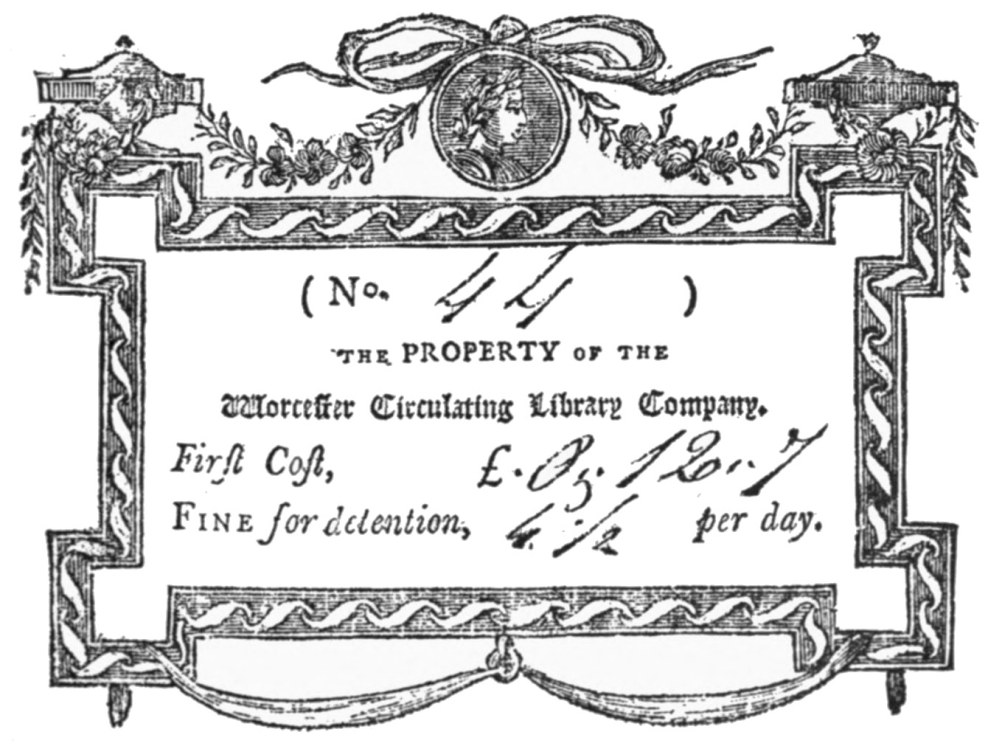 ( No. 44 )
THE PROPERTY OF THE
Worcester Circulating Library Company.
Firſt Coſt, £. 0, 12.. 7
FINE for detention, per day.